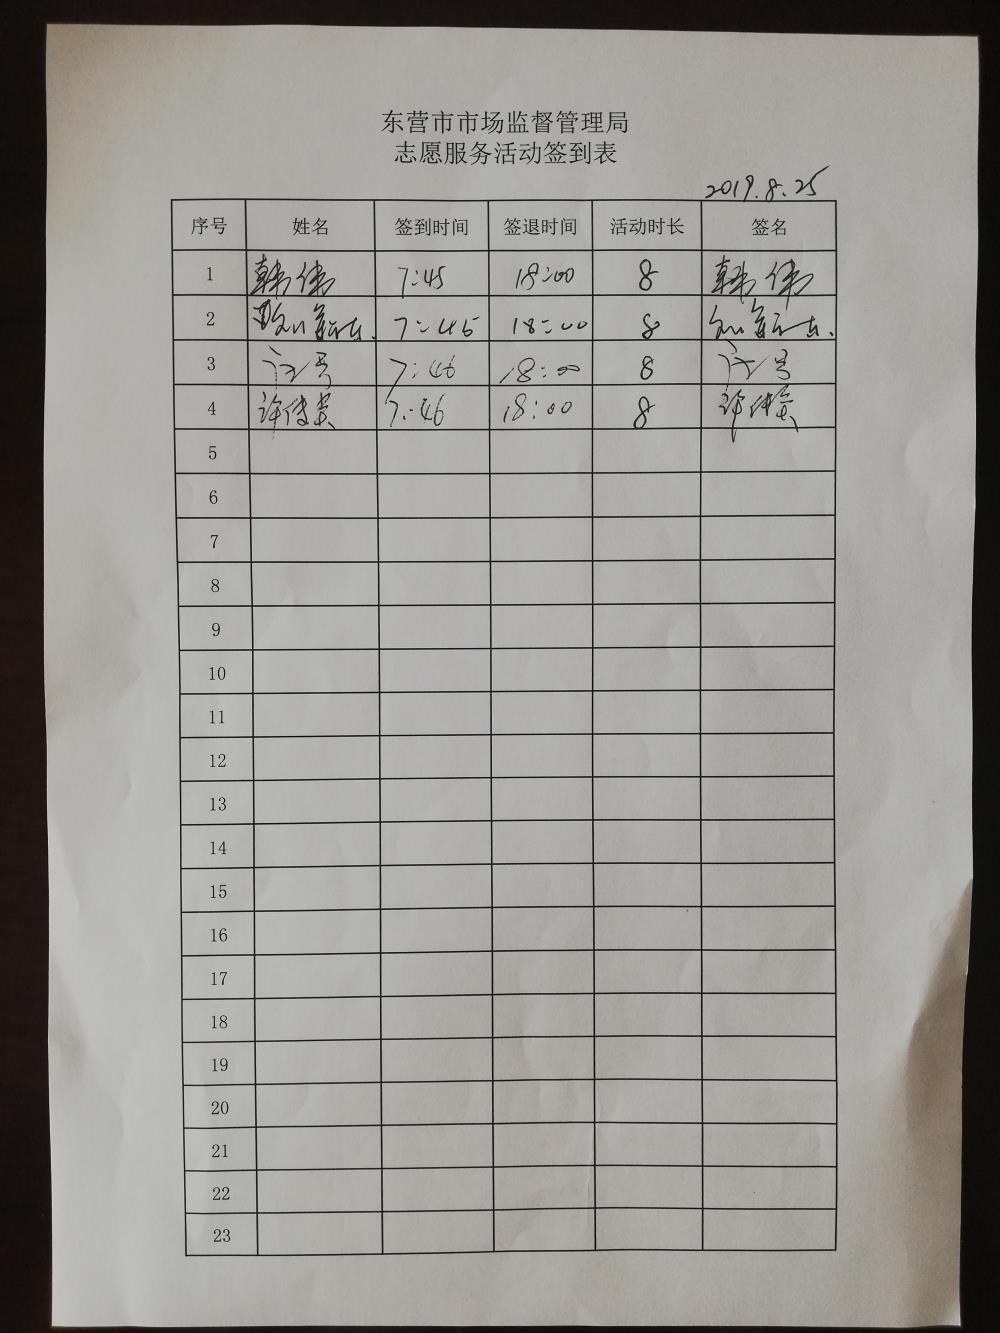 东营市市场监督管理局
志愿服务活动签到表
2019.8.25
序号 姓名 签到时间 签退时间 活动时长 签名
1 韩伟 7:45 18:00 8 韩伟
2 7:45 18:00 8
3 7:46 18:00 8
4 许传英 7:46 18:00 8 许传英
5
6
7
8
9
10
11
12
13
14
15
16
17
18
19
20
21
22
23